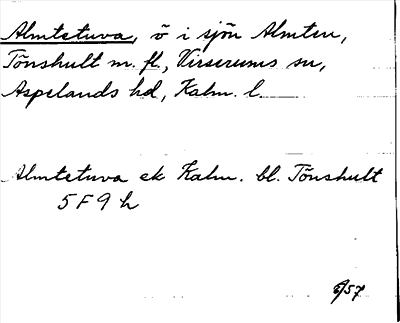 Almtetuva, ö i sjön Almten,
Tönshult m. fl., Virserums sn,
Aspelands hd, Kalm. l.
Almtetuva ek Kalm. bl. Tönshult
5 F 9 h
/57